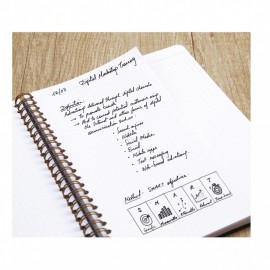 Digital Marketing Training
Definition:
Advertising delivered through digital channels
→ To promote brands
→ Aimed to connect potential customers using
the Internet and other forms of digital
communication such as:
- Search engines
- Website
- Social Media
- Email
- Mobile apps
- Text messaging
- Web-based advertising
Method: SMART objectives
S M A R T